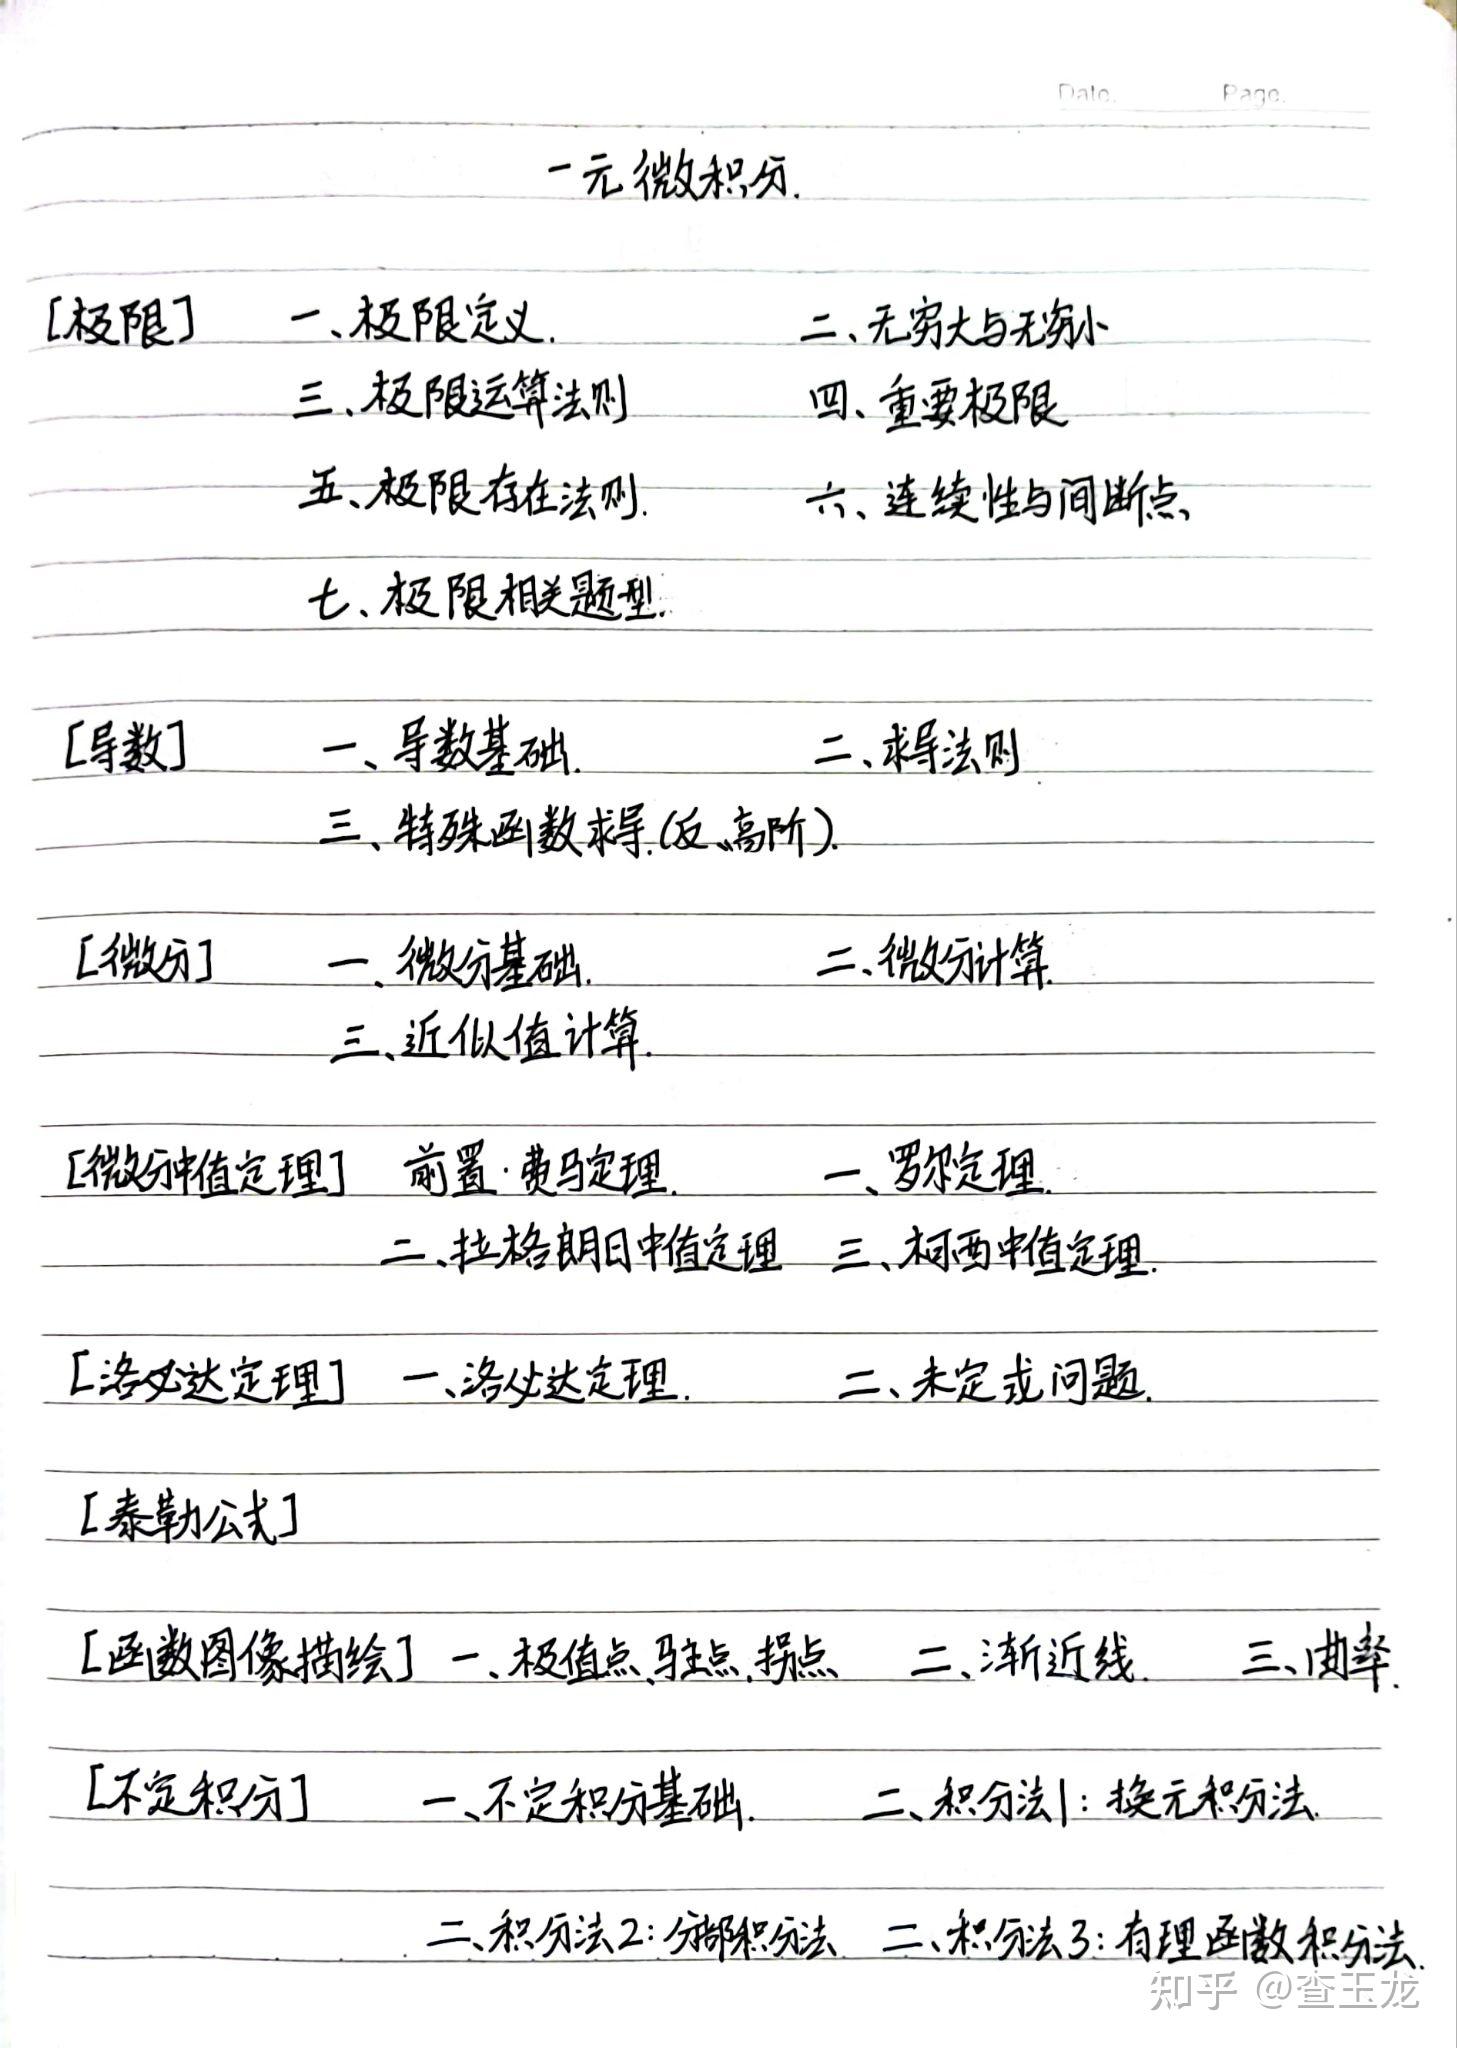 Date. Page.
一元微积分.
[极限] 一、极限定义. 二、无穷大与无穷小
三、极限运算法则 四、重要极限
五、极限存在法则. 六、连续性与间断点
七、极限相关题型.
[导数] 一、导数基础. 二、求导法则
三、特殊函数求导.(反、高阶).
[微分] 一、微分基础. 二、微分计算.
三、近似值计算.
[微分中值定理] 前置·费马定理. 一、罗尔定理.
二、拉格朗日中值定理 三、柯西中值定理.
[洛必达定理] 一、洛必达定理. 二、未定式问题.
[泰勒公式]
[函数图像描绘] 一、极值点、驻点、拐点 二、渐近线. 三、曲率.
[不定积分] 一、不定积分基础. 二、积分法1:换元积分法.
二、积分法2:分部积分法 二、积分法3:有理函数积分法.
知乎 @查玉龙